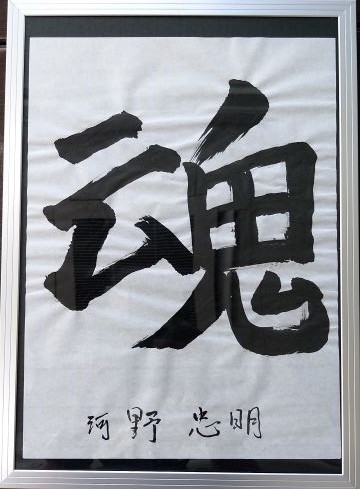 魂
河野 忠明